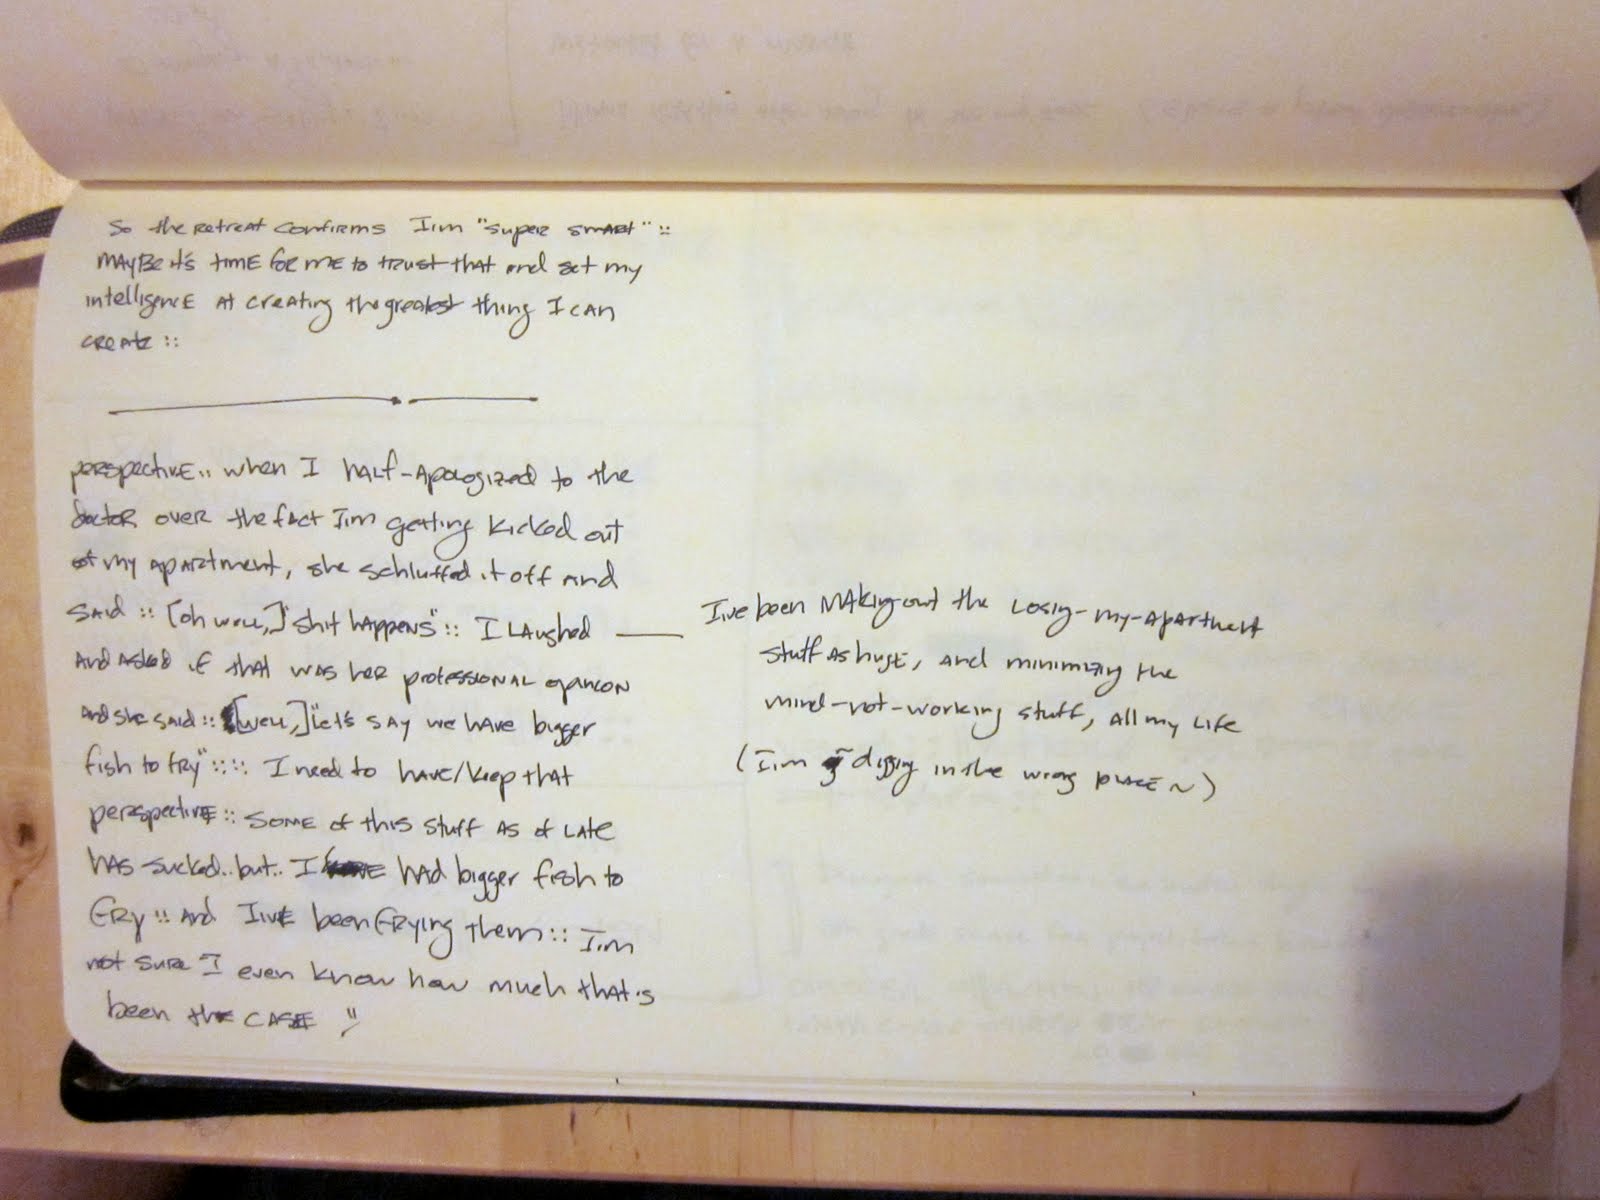 So the retreat confirms I'm "super smart" ::
maybe it's time for me to trust that and set my
intelligence at creating the greatest thing I can
create ::
perspective :: when I half-apologized to the
doctor over the fact I'm getting kicked out
of my apartment, she schluffed it off and
said :: [oh well,] "shit happens" :: I laughed
and asked if that was her professional opinion
and she said :: [well,] "let's say we have bigger
fish to fry" :::: I need to have/keep that
perspective :: some of this stuff as of late
has sucked.. but.. I had bigger fish to
fry :: and I've been frying them :: I'm
not sure I even know how much that's
been the case ::
I've been making out the losing-my-apartment
stuff as huge, and minimizing the
mind-not-working stuff, all my life
(I'm digging in the wrong place ~)